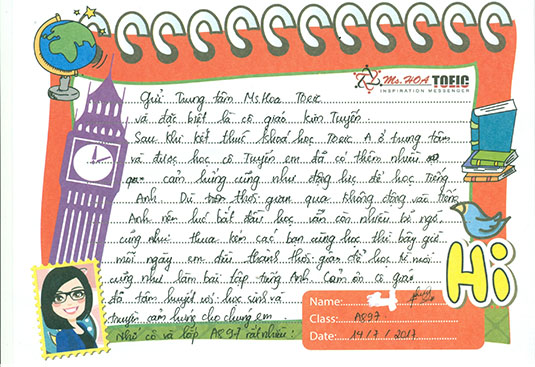 Ms.HOA TOEIC
INSPIRATION MESSENGER
Gửi Trung tâm Ms Hoa Toeic
và đặc biệt là cô giáo Kim Tuyến.
Sau khi kết thúc khoá học Toeic A ở trung tâm
và được học cô Tuyến em đã có thêm nhiều
cảm hứng cũng như động lực để học Tiếng
Anh. Dù thời gian qua không động vào tiếng
Anh nên lúc bắt đầu học vẫn còn nhiều bỡ ngỡ
cũng như thua kém các bạn cùng học thì bây giờ
mỗi ngày em đều thành thời gian để học từ mới
cũng như làm bài tập tiếng Anh. Cảm ơn cô giáo
đã tâm huyết với học sinh và
truyền cảm hứng cho chúng em.
Nhớ cô và lớp A897 rất nhiều :
Hi
Name:
Class: A897
Date: 14/7/2017